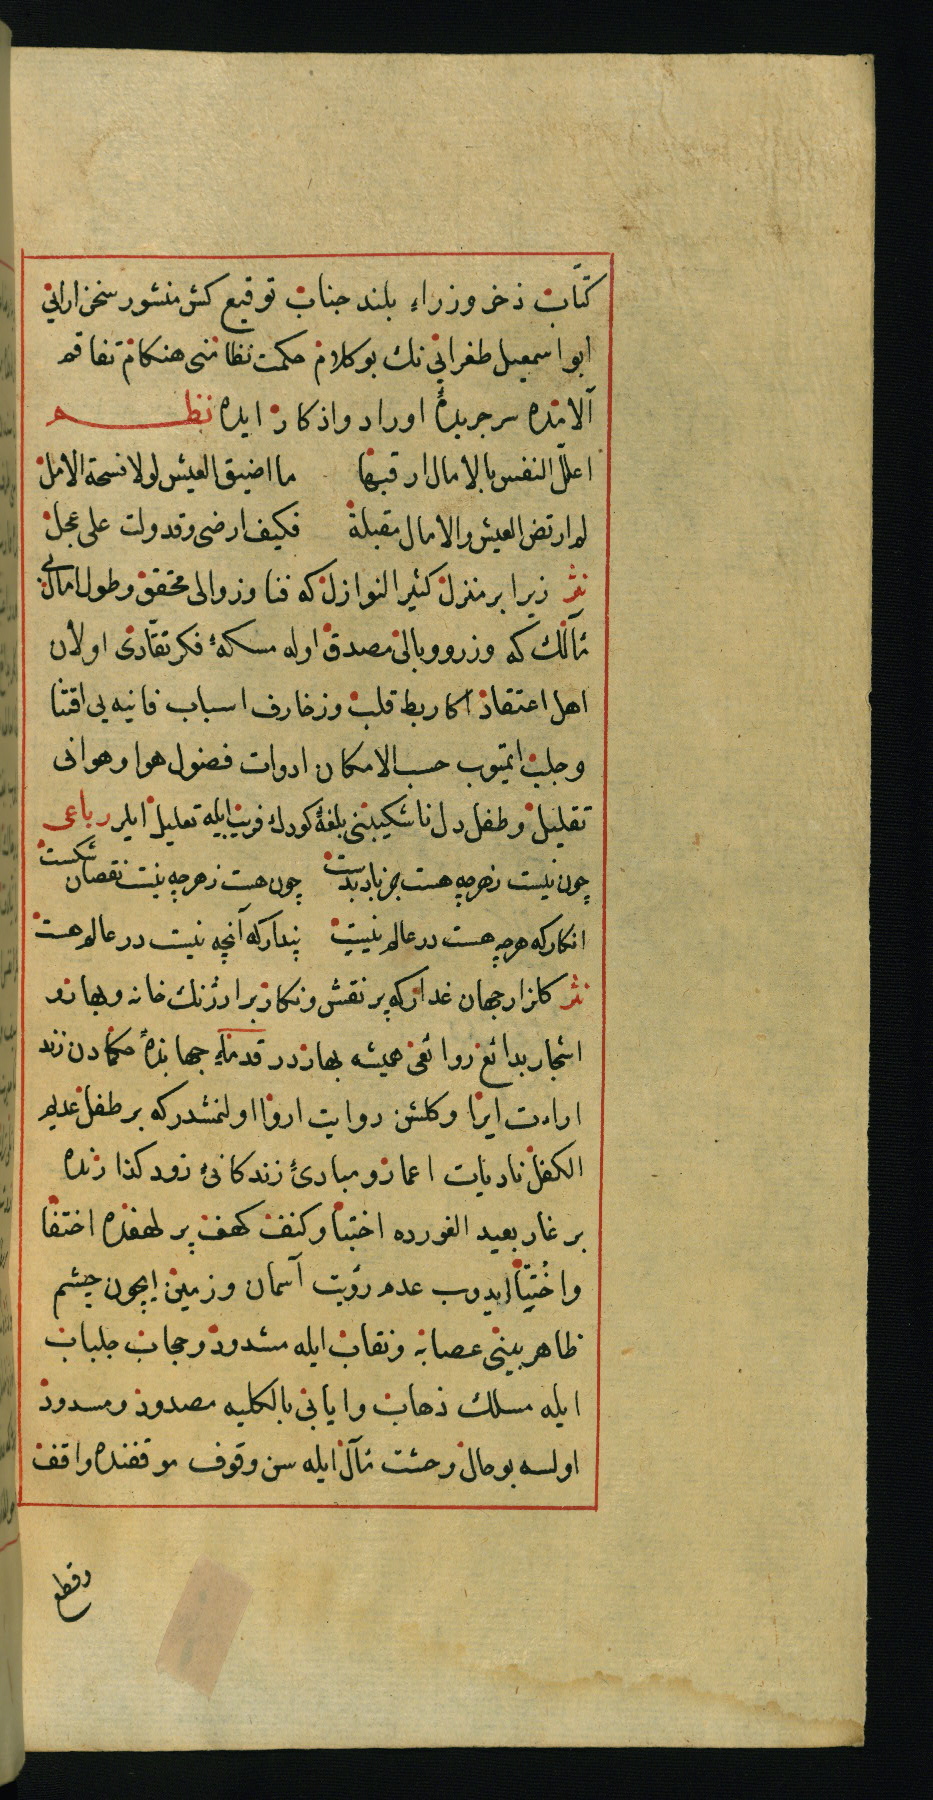 كتّاب ذخر وزراء بلند جناب توقيع كش منشور سخن اراني
ابو اسمعيل طغرائي نك بو كلام حكمت نظامنى هنكام تفاقم
آلامنده سر جريدۀ اوراد واذكار ايده نظم
اعلل النفس بالامال ارقبها ما اضيق العيش لولا فسحة الامل
لم ارتض العيش والامال مقبلة فكيف ارضى وقد ولت على عجل
نثر زيرا بر منزل كثير النوازل كه فنا وزوالى محقق وطول امالى
مآلك كه وزر ووبالى مصدق اوله مسكۀ فكر نقّادى اولان
اهل اعتقاد اكا ربط قلب وزخارف اسباب فانيه يى اقتنا
وجلب ايتميوب حسب الامكان ادوات فضول هوا وهوانى
تقليل وطفل دل ناشكيبنى بلغۀ كودك فريب ايله تعليل ايلر رباعى
چون نيست زهرچه هست جز باد بدست چون هست زهرچه نيست نقصان شكست
انكار كه هرچه هست در عالم نيست پندار كه آنچه نيست در عالم هست
نثر كلزار جهان غدار كه پر نقش ونكار برارژنك خانه وبهازو
اشجار بدائع روائعى هميشه بهار در قدماء جهابذۀ حكمادن زند
اراءت ايرا وكلشن روايت اروا اولنمشدر كه بر طفل عديم
الكفل ناديات اعمار ومبادئ زندكانئ زود كذارنده
بر غار بعيد الغورده اختبا وكنف كهف پر لهفنده اختفا
واختبّا ايدوب عدم رؤيت آسمان وزمين ايچون چشم
ظاهر بينى عصابه ونقاب ايله مشدود وحجاب جلباب
ايله مسلك ذهاب وايابى بالكليه مصدود ومسدود
اولسه بو حال وحشت مآل ايله سن وقوف موقفنده واقف
وقطع